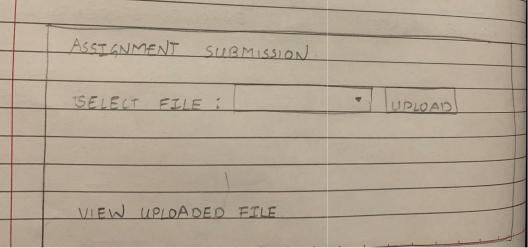 ASSIGNMENT SUBMISSION
SELECT FILE : UPLOAD
VIEW UPLOADED FILE